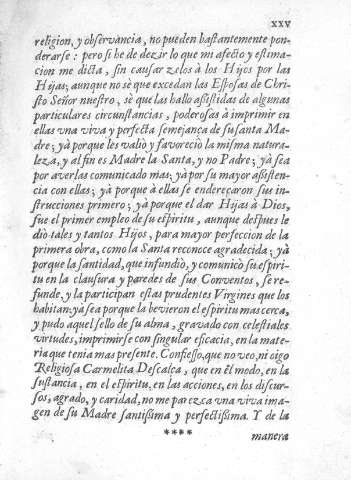 XXV
religion, y observancia, no pueden bastantemente pon-
derarse: pero si he de dezir lo que mi afecto y estima-
cion me dicta, sin causar zelos à los Hijos por las
Hijas; aunque no sè que excedan las Esposas de Chri-
sto Señor nuestro, sè que las hallo asistidas de algunas
particulares circunstancias, poderosas à imprimir en
ellas una viva y perfecta semejança de su santa Ma-
dre; yà porque les valiò y favoreciò la misma natura-
leza, y al fin es Madre la Santa, y no Padre; yà sea
por averlas comunicado mas; yà por su mayor assisten-
cia con ellas; yà porque à ellas se endereçaron sus in-
strucciones primero; yà porque el dar Hijas à Dios,
fue el primer empleo de su espiritu, aunque despues le
diò tales y tantos Hijos, para mayor perfeccion de la
primera obra, como la Santa reconoce agradecida; yà
porque la santidad, que infundiò, y comunicò su espiri-
tu en la clausura y paredes de sus Conventos, se re-
funde, y la participan estas prudentes Virgines que los
habitan: yà sea porque la bevieron el espiritu mas cerca,
y pudo aquel sello de su alma, gravado con celestiales
virtudes, imprimirse con singular eficacia, en la mate-
ria que tenia mas presente. Confiesso, que no veo, ni oigo
Religiosa Carmelita Descalça, que en el modo, en la
sustancia, en el espiritu, en las acciones, en los discur-
sos, agrado, y caridad, no me parezca una viva ima-
gen de su Madre santissima y perfectissima. Y de la
****
manera